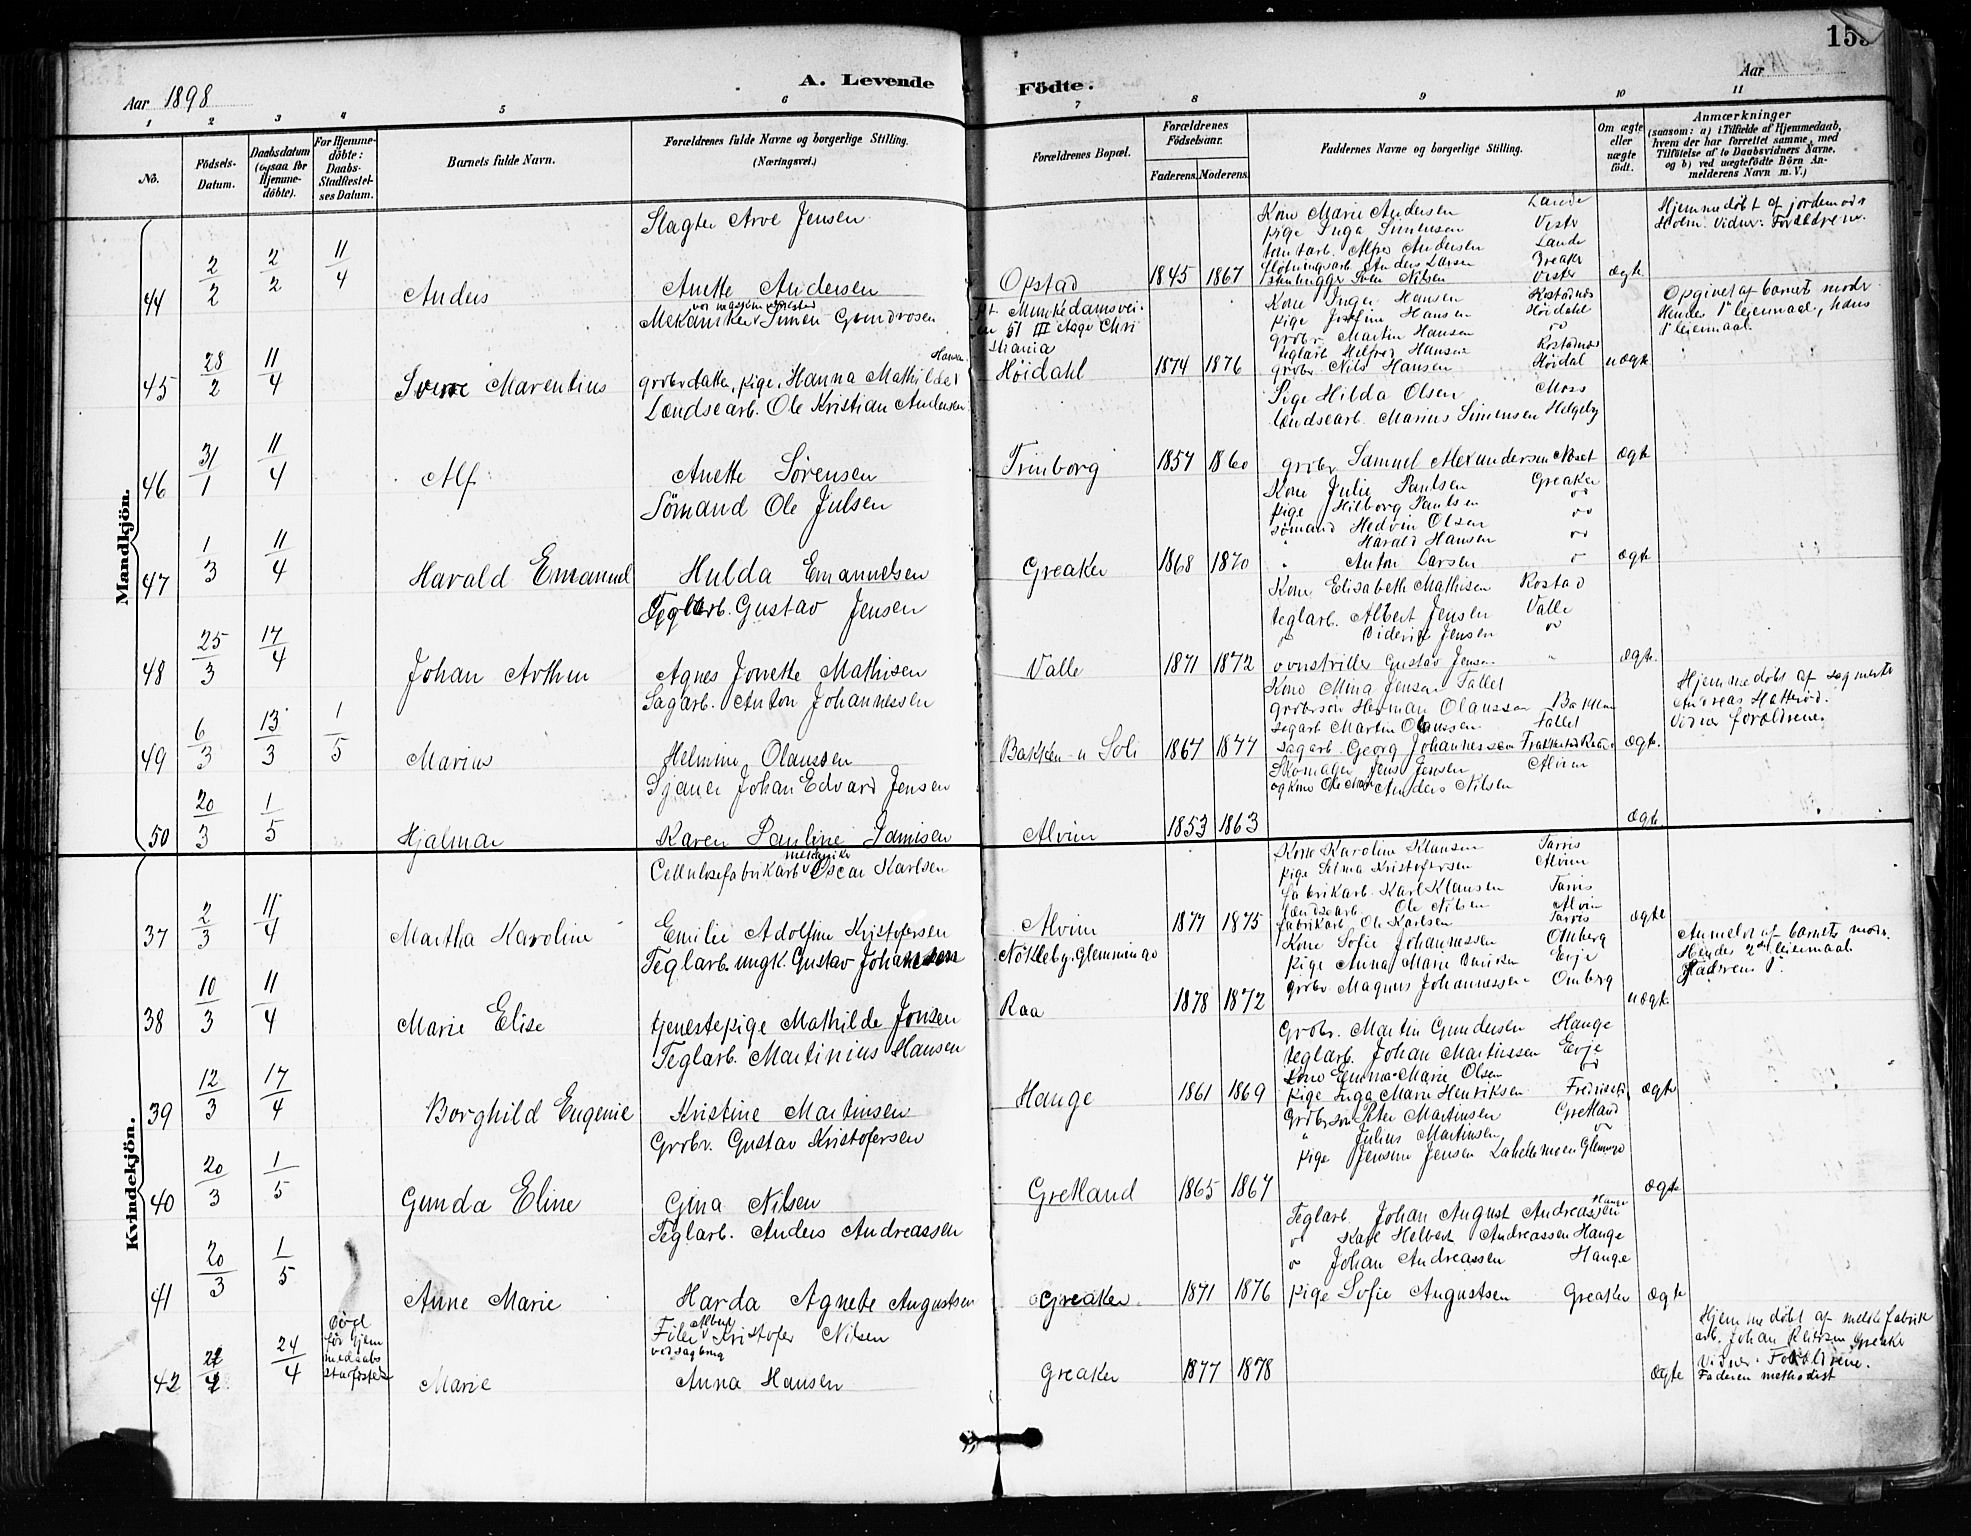 A. Levende Födte.
153
Aar 1898
Aar
1 2 3 4 5 6 7 8 9 10 11
No.
Födsels-Datum.
Daabsdatum (ogsaa for Hjemmedöbte).
For Hjemmedöbte: Daabs-Stadfæstelses Datum.
Barnets fulde Navn.
Forældrenes fulde Navne og borgerlige Stilling. (Næringsvei.)
Forældrenes Bopæl.
Forældrenes Födselsaar.
Faderens. Moderens.
Faddernes Navne og borgerlige Stilling.
Om ægte eller uægte födt.
Anmærkninger
(saasom: a) i Tilfælde af Hjemmedaab, hvem der har forrettet samme, med Tilföielse af to Daabsvidners Navne, og b) ved uægtefödte Börn Anmelderens Navn m. V.)
Mandkjön.
44 2/2 2/2 11/4 Anders
Slagter Arve Jensen
Anette Andersen
Opstad 1845 1867
Kone Marie Andersen Lande
pige Inga Simensen Vister
Alfr Andersen Lande
Anders Larsen Greaker
stenhugger Nilsen Vister
ægte
Hjemmedøbt af jordemor
Holm. Vidner: Forældrene.
45 28/2 11/4 Sverre Marentius
Mekaniker ved mek. værksted Simen Gundrosen
grbrdatter, pige, Hanna Mathilde Hansen
pt. Munkedamsveien 51 III etage Christiania
Høidahl 1874 1876
Kone Inger Hansen Rostadnes
pige Josefine Hansen Høidahl
grbr. Martin Hansen do
teglarb. Hansen Rostadnes
grbr Nils Hansen Høidal
uægte
Opgivet af barnets moder
Hendes 1ste leiermaal, hans
1ste leiermaal.
46 31/1 11/4 Alf
Lændsearb. Ole Kristian Andersen
Anette Sørensen
Trinborg 1857 1860
Pige Hilda Olsen Moss
Lændsearb. Marius Simensen Helgeby
grbr Samuel Alexandersen
ægte
47 1/3 11/4 Harald Emanuel
Sømand Ole Julsen
Hulda Emanuelsen
Greaker 1868 1870
Kone Julie Paulsen Greaker
pige Hilborg Paulsen do
sømand Hedvin Olsen do
" Harald Hansen do
" Anton Larsen
ægte
48 25/3 17/4 Johan Arthur
Teglarb. Gustav Jensen
Agnes Jonette Mathisen
Valle 1871 1872
Kone Elisabeth Mathisen Rostad
teglarb. Albert Jensen Valle
" Diderik Jensen do
Gustav Jensen "
ægte.
49 6/3 13/3 1/5 Marius
Sagarb. Anton Johannessen
Helmine Olaussen
Bakken u Soli 1867 1877
Kone Mina Jensen Tallet
Grbrsøn Herman Olaussen Bakken
sagarb Martin Olaussen Tallet
sagarb. Georg Johannessen
ægte.
Hjemmedøbt af sagmester
Andreas Hatterød.
Vidner forældrene.
50 20/3 1/5 Hjalmar
Sjauer Johan Edvard Jensen
Karen Pauline Jamisen
Alvim 1853 1863
Skomager Jens Jensen Alvim
og kone Anders Nilsen
ægte.
Kvindekjön.
37 2/3 11/4 Martha Karoline
Cellulosefabrikarb. Oscar Karlsen
Emilie Adolfine Kristofersen
Alvim 1877 1875
Kone Karoline Klausen Tarris
pige Selma Kristofersen Alvim
fabrikarb. Karl Klausen Tarris
Lændsearb. Ole Nilsen Alvim
fabrikarb Ole Karlsen Tarris
ægte
38 10/3 11/4 Marie Elise
Teglarb. ungk. Gustav Johansen
tjenestepige Mathilde Jonsen
Nøkleby. Glemminge
Raa 1878 1872
Kone Sofie Johannessen Omberg
pige Anna Marie Evje
grbr Magnus Johannessen Omberg
uægte
Anmeldt af barnets moder.
Hendes 2det leiermaal
Faderens 1ste.
39 12/3 17/4 Borghild Eugenie
Teglarb. Martinius Hansen
Kristine Martinsen
Hauge 1861 1869
Grbr. Martin Gundersen Hauge
teglarb. Johan Martinssen Evje
Kone Emma Marie Olsen do
pige Inga Marie Henriksen
ægte
40 20/3 1/5 Gunda Eline
Grbr. Gustav Kristofersen
Gina Nilsen
Gretland 1865 1867
Grbrsøn Peter Martinsen Gretland
" Julius Martinsen do
pige Jensine Jensen Labellemoen Glemminge
ægte
41 20/3 1/5 Anne Marie
Teglarb. Anders Andreassen
Harda Agnete Augustsen
Greaker. 1871 1876
Teglarb. Johan August Andreassen Hauge
do Karl Helbert Andreassen Hauge
do Johan Andreassen Hauge
pige Sofie Augustsen Greaker
ægte
42 24/4 Døde før hjemmedaabs stadfæstelse Marie
Filer Albert Kristofer Nilsen
ved sagbrug
Anna Hansen
Greaker 1877 1878
ægte
Hjemmedøbt af fabrik
arb. Johan Greaker
Vidner: Forældrene.
Faderen methodist